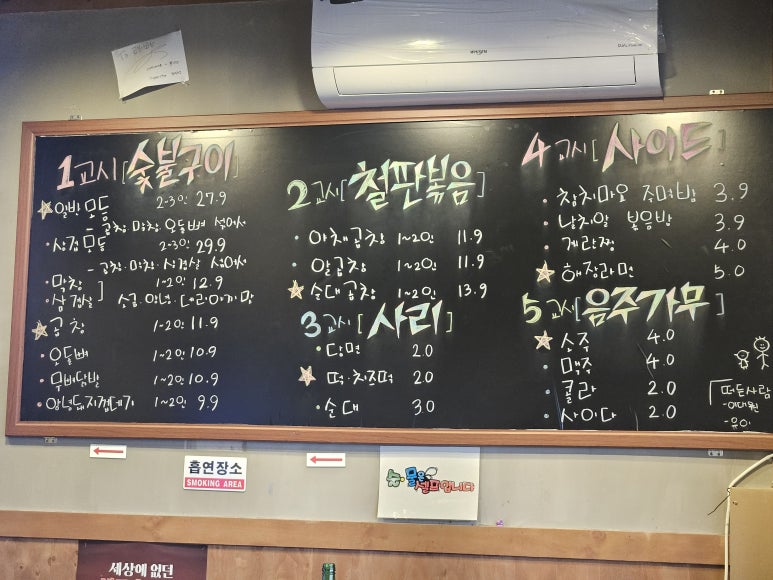 1교시 [숯불구이]
일반모듬 2-3인 27.9
- 곱창, 막창, 오돌뼈 섞어서
삼겹모듬 2-3인 29.9
- 곱창, 막창, 삼겹살 섞어서
막창
삼겹살 ] 1~2인 12.9
소금, 양념, 데리야끼 맛
곱창 1~2인 11.9
오돌뼈 1~2인 10.9
무뼈닭발 1~2인 10.9
양념돼지껍데기 1~2인 9.9
2교시 [철판볶음]
야채곱창 1~2인 11.9
알곱창 1~2인 11.9
순대곱창 1~2인 13.9
3교시 [사리]
당면 2.0
떡·치즈떡 2.0
순대 3.0
4교시 [사이드]
참치마요 주먹밥 3.9
날치알 볶음밥 3.9
계란찜 4.0
해장라면 5.0
5교시 [음주가무]
소주 4.0
맥주 4.0
콜라 2.0
사이다 2.0
떠든사람
흡연장소
SMOKING AREA
물은 셀프입니다
세상에 없던